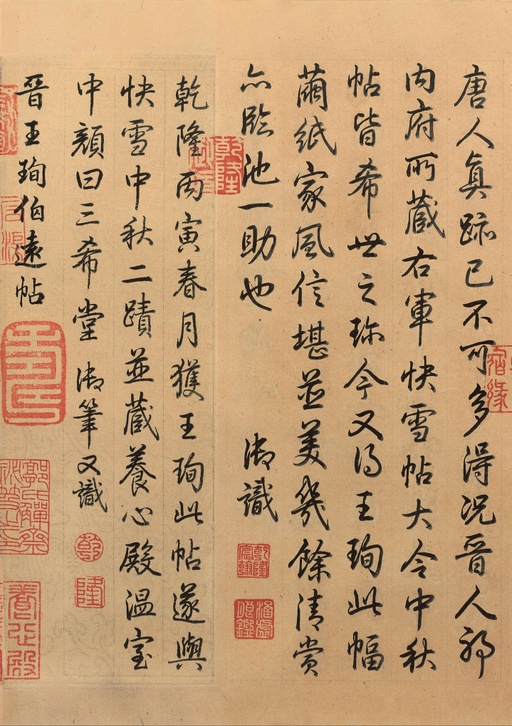 唐人真跡已不可多得況晉人耶
內府所藏右軍快雪帖大令中秋
帖皆希世之珍今又得王珣此幅
繭紙家風信堪並美幾餘清賞
亦臨池一助也 御識
乾隆丙寅春月獲王珣此帖遂與
快雪中秋二蹟並藏養心殿溫室
中顏曰三希堂 御筆又識
乾隆
晉王珣伯遠帖
乾隆
養心殿